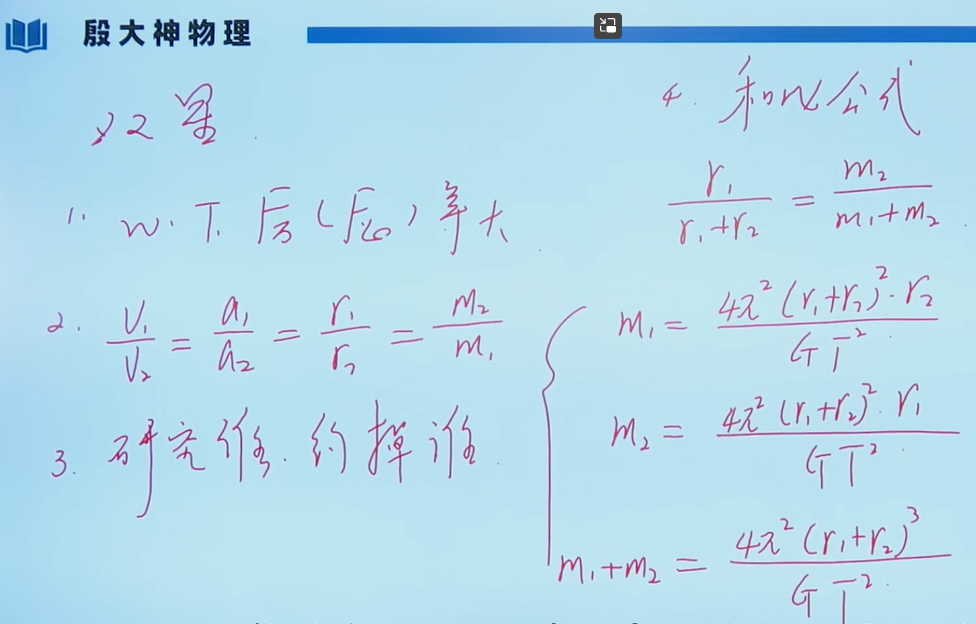 殷大神物理
双星.
1. w. T. F万(F向)等大.
2. v₁/v₂ = a₁/a₂ = r₁/r₂ = m₂/m₁
3. 研究谁. 约掉谁.
4. 和比公式
r₁/(r₁+r₂) = m₂/(m₁+m₂)
m₁ = 4π²(r₁+r₂)²·r₂/(GT²)
m₂ = 4π²(r₁+r₂)²·r₁/(GT²)
m₁+m₂ = 4π²(r₁+r₂)³/(GT²)